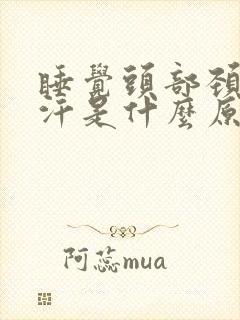 睡覺頭部頚
汗是什麼原
阿蕊mua